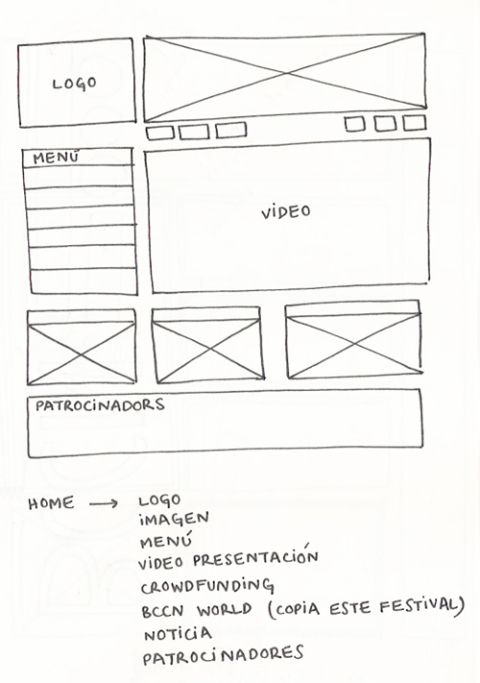 LOGO
MENÚ
VIDEO
PATROCINADORS
HOME → LOGO
IMAGEN
MENÚ
VIDEO PRESENTACIÓN
CROWDFUNDING
BCCN WORLD (COPIA ESTE FESTIVAL)
NOTICIA
PATROCINADORES